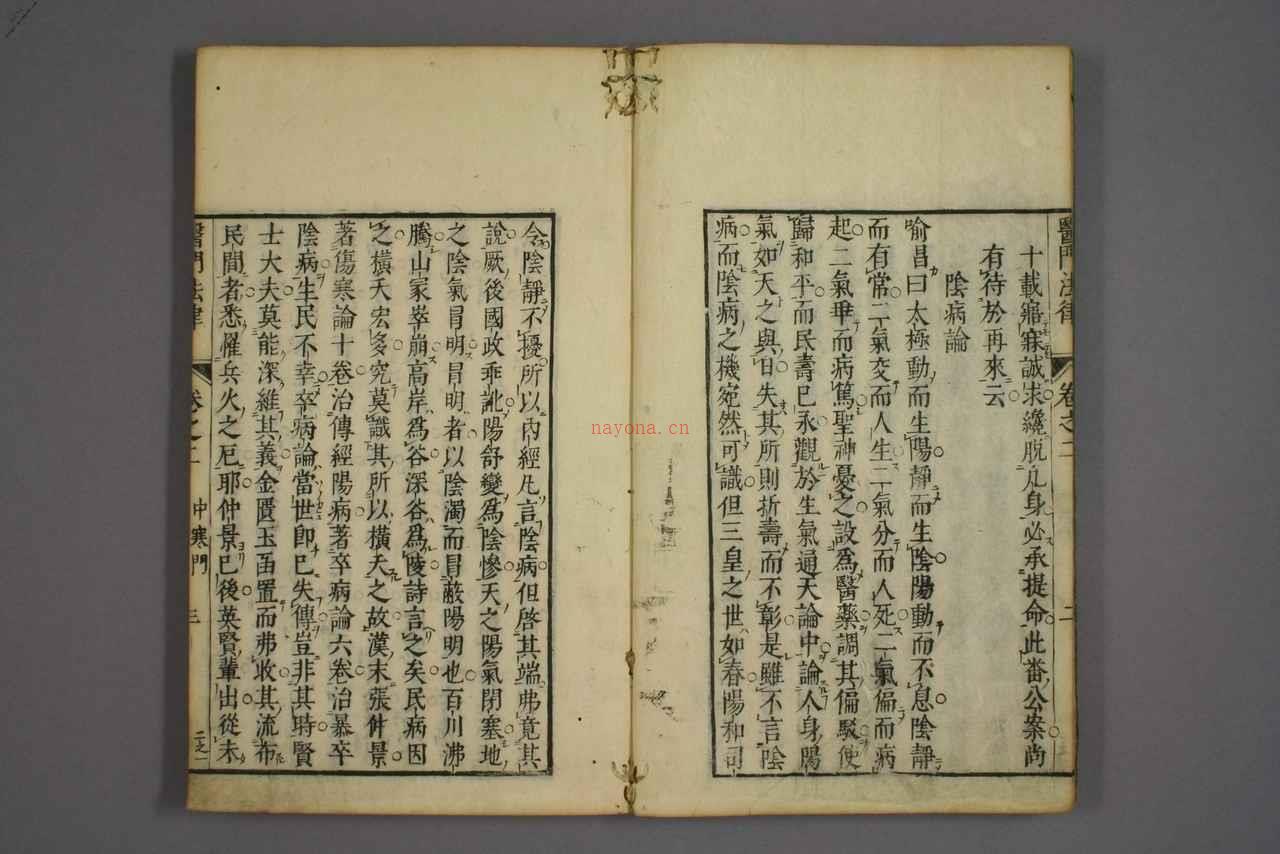 醫門法律 卷之二 二
十載寤寐誠求纔脫凡身必承提命此番公案尚
有待於再來云
陰病論
喻昌曰太極動而生陽靜而生陰陽動而不息陰靜
而有常二氣交而人生二氣分而人死二氣偏而病
起二氣乖而病篤聖神憂之設為醫藥調其偏駁使
歸和平而民壽已永觀於生氣通天論中論人身陽
氣如天之與日失其所則折壽而不彰是雖不言陰
病而陰病之機宛然可識但三皇之世如春陽和司
令陰靜不擾所以內經凡言陰病但啓其端弗竟其
說厥後國政乖訛陽舒變為陰慘天之陽氣閉塞地
之陰氣冒明冒明者以陰濁而冒蔽陽明也百川沸
騰山冢崒崩高岸為谷深谷為陵詩言之矣民病因
之橫夭宏多究莫識其所以橫夭之故漢末張仲景
著傷寒論十卷治傳經陽病著卒病論六卷治暴卒
陰病生民不幸卒病論當世即已失傳豈非其時賢
士大夫莫能深維其義金匱玉函置而弗收其流布
民間者悉罹兵火之厄耶仲景已後英賢輩出從未
醫門法律 卷之二 中寒門 三 二之一
nayona.cn